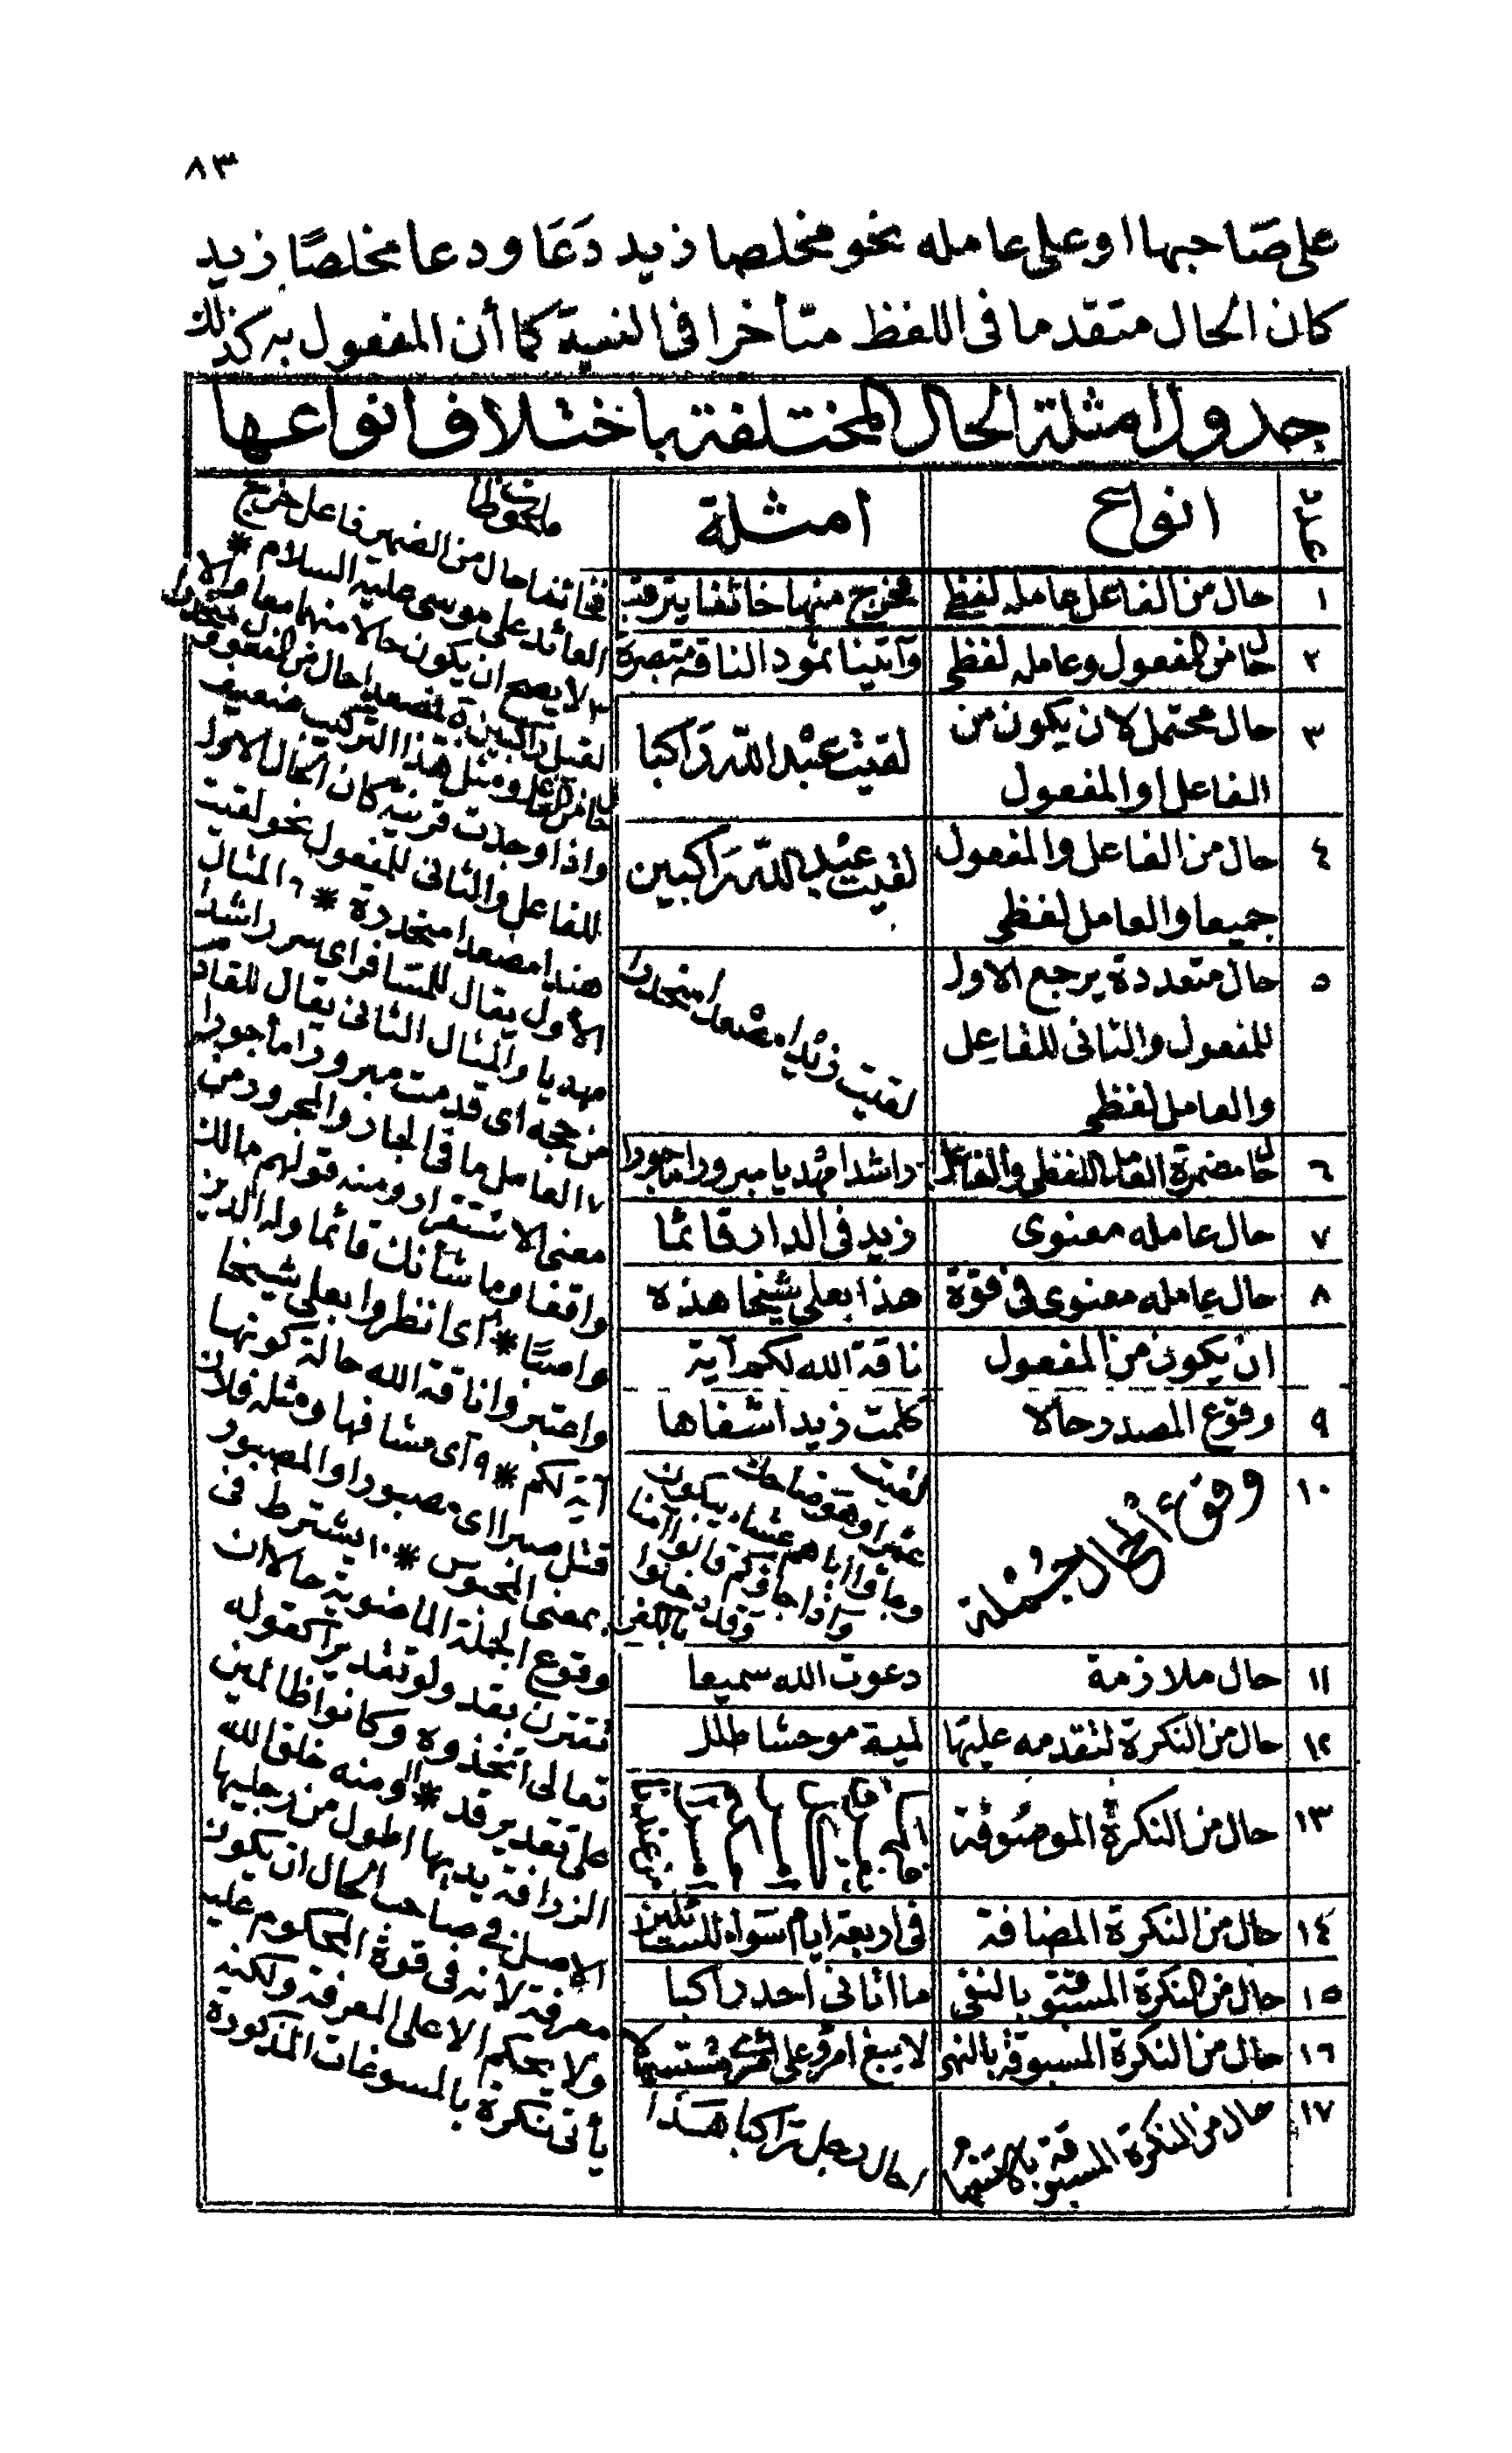 ٨٣
على صَاحبها او على عامله نحو مخلصا زيد دَعَا ودعا مخلصًا زيد
كان الحال متقدما فى اللفظ متأخرا فى النسية كما أن المفعول به كذلك
جدول امثلة الحال المختلفة باختلاف انواعها
عدد
انواع
أمثلة
ملحوظات
١
حال من الفاعل عامله لفظى
فخرج منها خائفا يترقب
٢
حال من المفعول وعامله لفظى
وآتينا ثمود الناقة مبصرة
٣
حال محتمل لان يكون من
الفاعل او المفعول
لقيت عبْد الله رَاكبا
٤
حال من الفاعل والمفعول
جميعا والعامل لفظى
لقيت عبْد الله رَاكبين
٥
حال متعددة يرجع الاول
للمفعول والثانى للفاعل
والعامل لفظى
لقيت زيْدا مصْعدا منحدرا
٦
حال مضمرة العامل اللفظى والفاعل
راشدا مهديا مبرورا مأجورا
٧
حال عامله معنوى
زيد فى الدار قائما
٨
حال عامله معنوى فى قوّة
ان يكون من المفعول
هذا بعلى شيخا هذه
ناقة الله لكم آية
٩
وقوع المصدر حالا
كلمت زيدا شفاها
١٠
وقوع الحال جمْلة
لقيت
عمْرا وهو ضاحك
وجاؤا اباهم عشاء يبكون
وَاذا جاؤكم قالوا آمنا
وَقد دخلوا بالكفر
١١
حال ملازمة
دعوت الله سميعا
١٢
حال من النكرة لتقدمه عليها
لمية موحشا طلل
١٣
حال من النكرة الموصُوفة
١٤
حال من النكرة المضافة
فى اربعة ايام سَواء للسائلين
١٥
حال من النكرة المسبوقة بالنفى
ما اتانى احد راكبا
١٦
حال من النكرة المسبوقة بالنهى
لا يبغ امرؤ على امرئ مستسهلا
١٧
حال من النكرة المسبوقة بالاستفهام
احال رجل راكبا هَذا
فخائفا حال من الضمير فاعل خرج
العائد على موسى عليه السلام *
٣ لا يصح ان يكون حالا منهما معا والا
لقيل راكبين ٥ مصعدا حال من المفعول ومنحدرا
حال من الفاعل ومثل هذا التركيب ضعيف
واذا وجدت قرينة كان الحال الاول
للفاعل والثانى للمفعول نحو لقيت
هندا مصعدا منحدرة * ٦ المثال
الأول يقال للمسَافر اى سر راشدا
مهديا والمثال الثانى يقال للقادم
من حجه اى قدمت مبرورا مأجورا
٧ العامل ما فى الجار والمجرور من
معنى الاستقرار ومنه قولهم مالك
واقفا وما شأنك قائما وله الدين
واصبًا * أى انظروا بعلى شيخا
واعتبروا ناقة الله حالة كونها
آية لكم * ٩ أى مشافها ومثله فلان
قتل صبرا اى مصبورا والمصبور
بمعنى المحبوس * ١٠ يشترط فى
وقوع الجملة الماضوية حالا ان
تقترن بقد ولو تقديرا كقوله
تعالى اتخذوه وكانوا ظالمين
على تقدير قد * ١١ ومنه خلق الله
الزرافة يديها اطول من رجليها
الاصل فى صاحب الحال ان يكون
معرفة لانه فى قوة المحكوم عليه
ولا يحكم الا على المعرفة ولكنه
يأتى نكرة بالمسوغات المذكورة